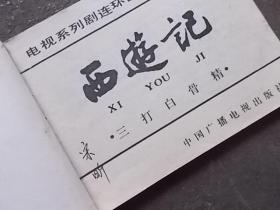 电视系列剧连环
西遊記
XI YOU JI
·三打白骨精·
中国广播电视出版社
宋昕